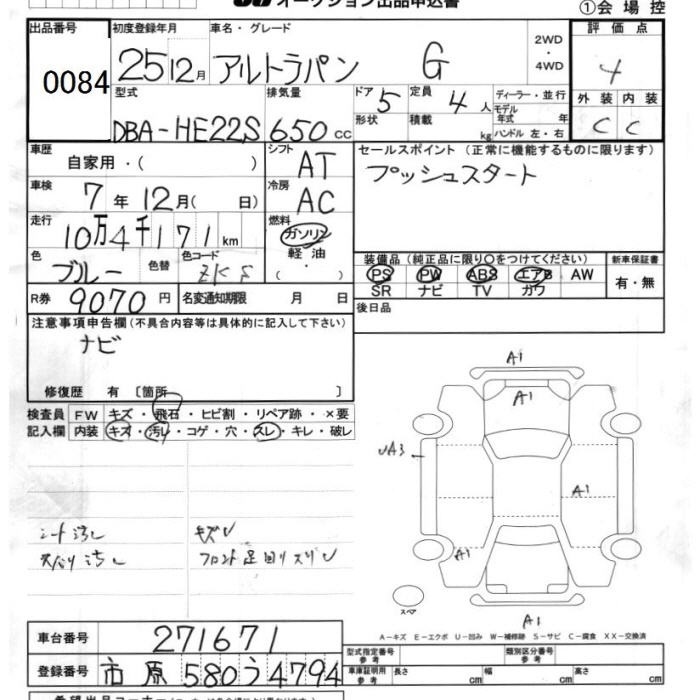 オークション出品申込書
①会場控
出品番号 初度登録年月 車名・グレード 評価点
0084 25 12月 アルトラパン G 2WD・4WD 4
型式 排気量 ドア 5 定員 4人 ディーラー・並行 外装 内装
DBA-HE22S 650cc 形状 積載 kg モデル年式 年 C C
ハンドル 左・右
車歴 自家用・( ) シフト AT セールスポイント (正常に機能するものに限ります)
車検 7年12月( 日) 冷房 AC プッシュスタート
走行 10万4千171km 燃料 ガソリン 軽油 ( )
色 ブルー 色替 色コード ZKS 装備品(純正品に限り○をつけてください) 新車保証書
PS PW ABS エアB AW 有・無
R券 9070円 名変通知期限 月 日 SR ナビ TV ガワ
注意事項申告欄(不具合内容等は具体的に記入して下さい) 後日品
ナビ
修復歴 有 〔箇所 〕
検査員 FW キズ・飛石・ヒビ割・リペア跡・×要
記入欄 内装 キズ・汚レ・コゲ・穴・スレ・キレ・破レ
A1
A1
UA3
A1
A1
シート汚レ キズU
フロント足回りスリU
スペア
A1
A-キズ E-エクボ U-凹み W-補修跡 S-サビ C-腐食 XX-交換済
車台番号 271671 型式指定番号 参考 類別区分番号 参考
登録番号 市原 580 う 4794 車庫証明用 参考 長さ cm 幅 cm 高さ cm